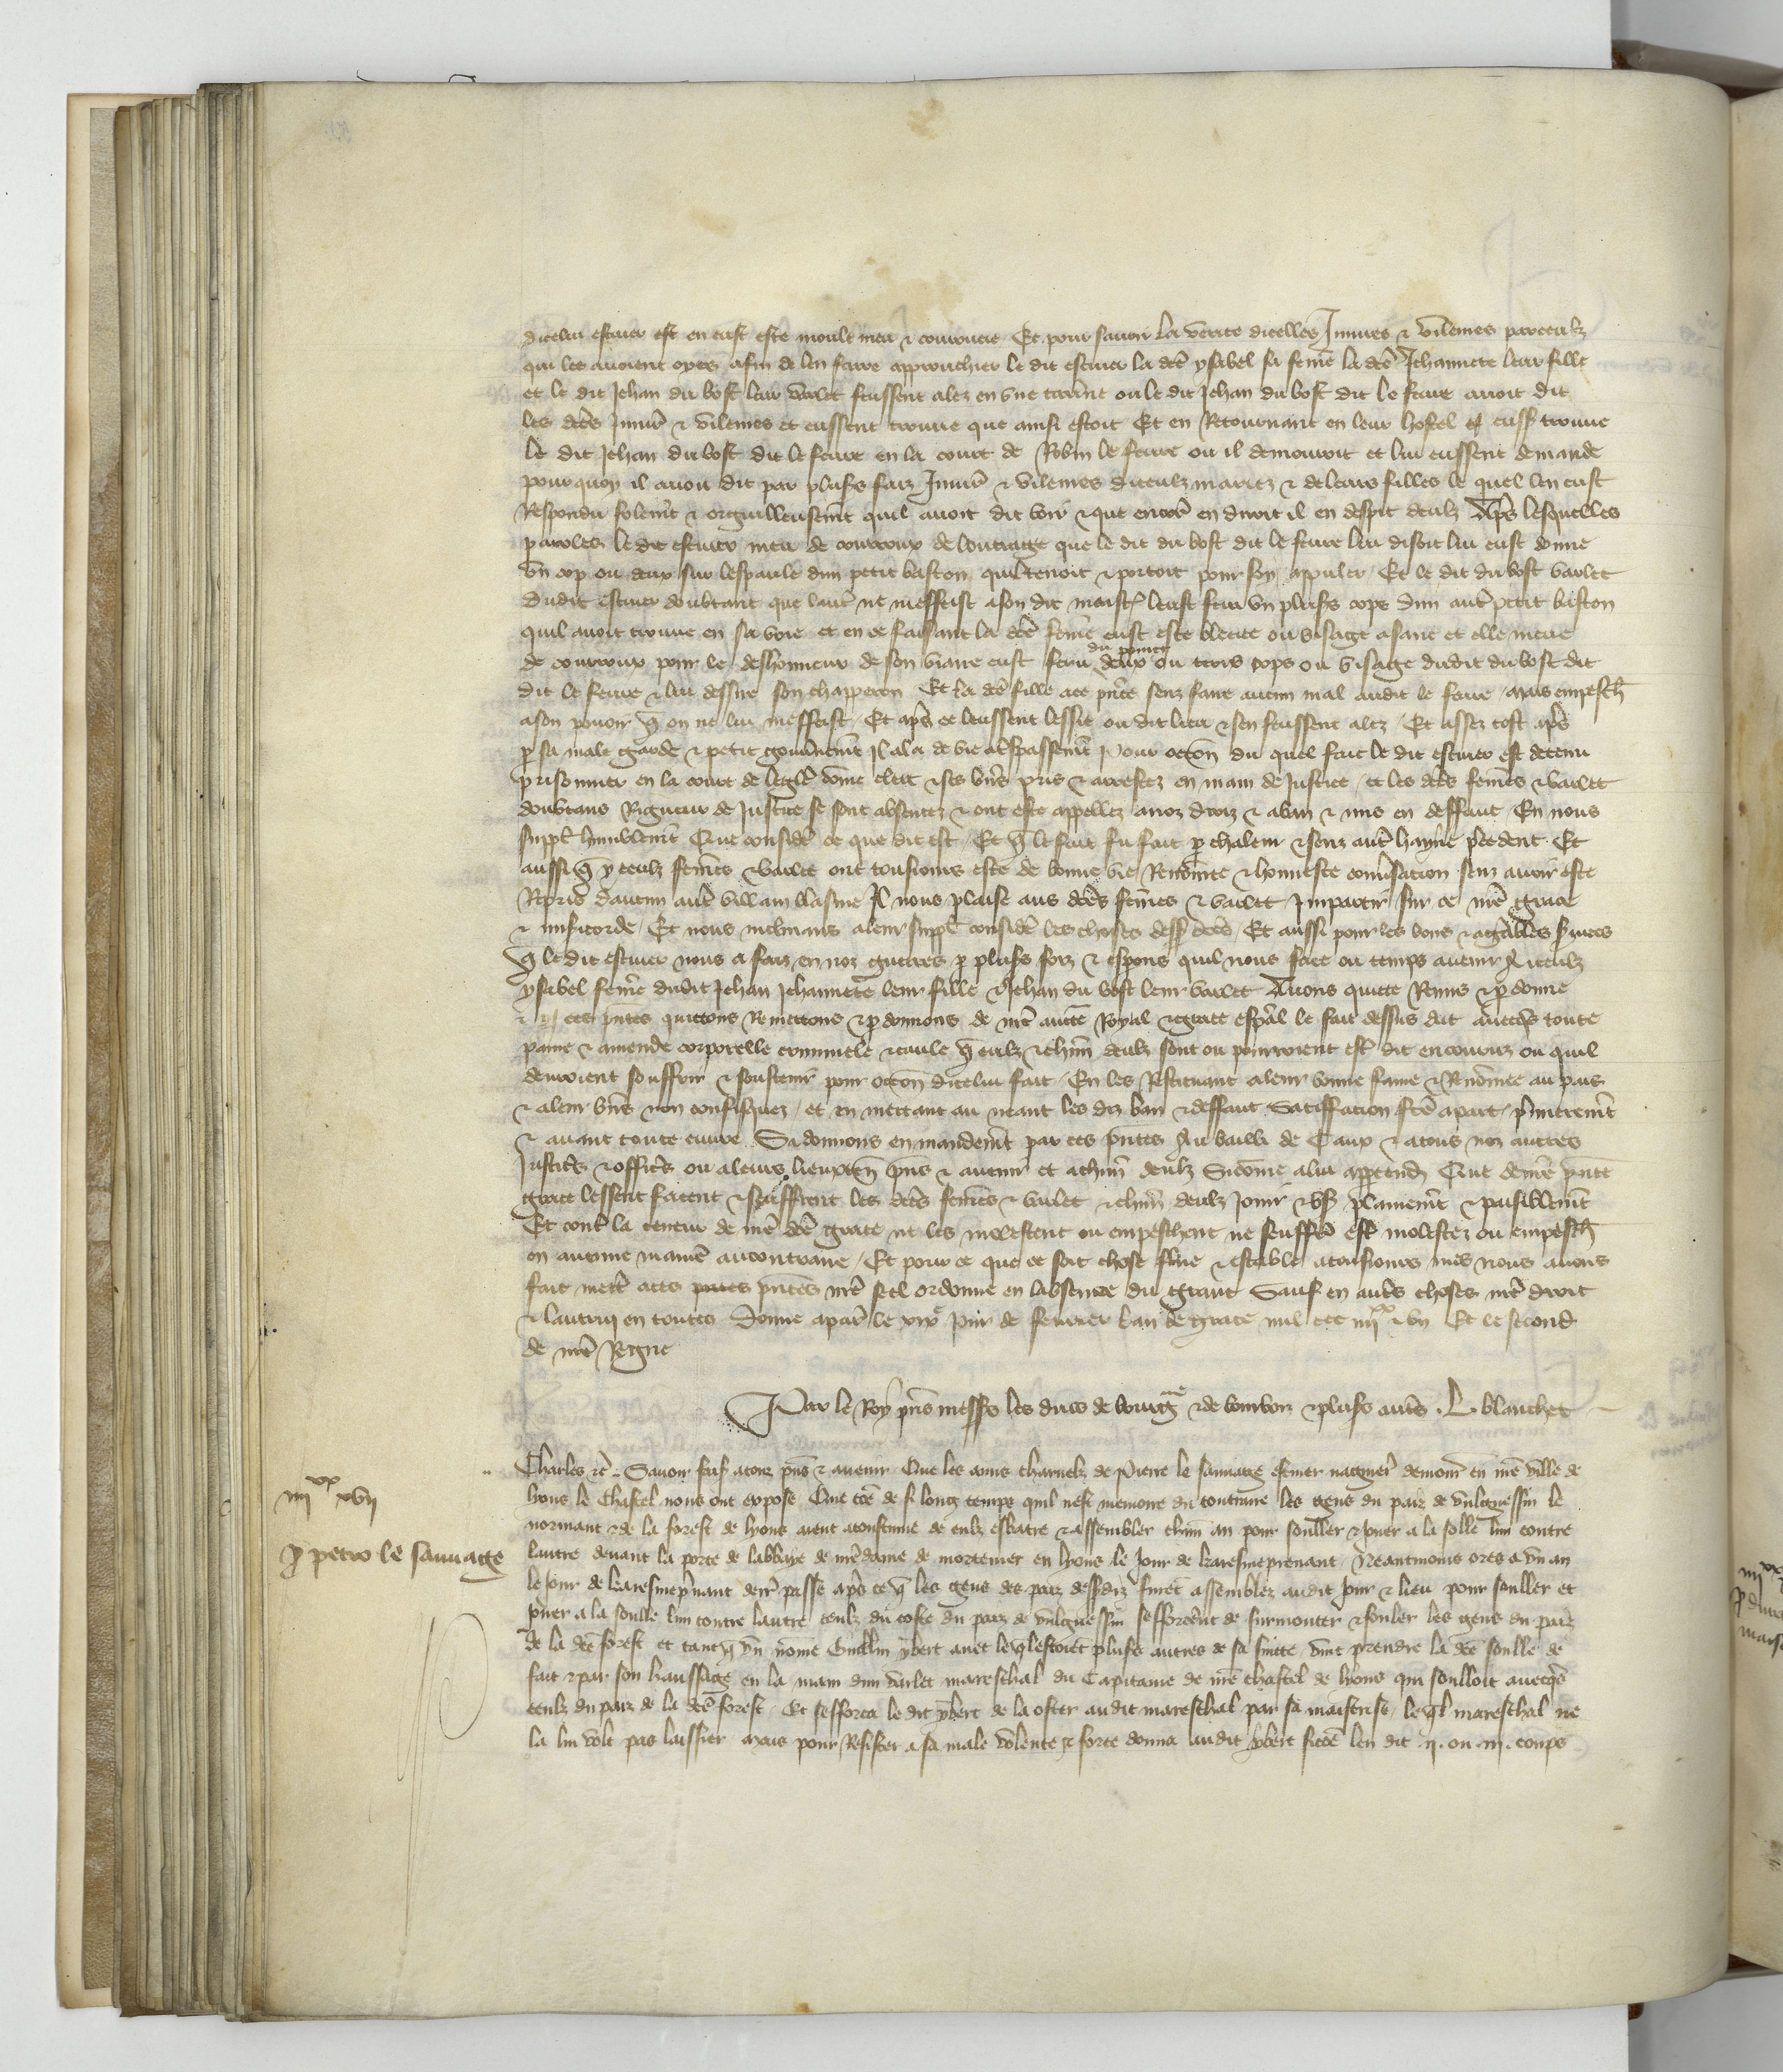 dicelui escuier est en eust este moult meu & courroucie Et pour savoir la verite dicelles Iniures & vilenies par ceulx
qui les avoient oyes afin de len faire approuchier le dit escuier la dce ysabel sa feme la dce Jehannete leur fille
et le dit Jehan du bosc leur varlet feussent alez en une taverne ou le dit Jehan du bosc dit le feure avoit dit
les dces Iniures & vilenies et eussent trouve que ainsi estoit Et en Retournant en leur hostel eussent trouve
le dit Jehan du bosc dit le feure en la court de Robin le feure ou il demouroit et lui eussent demande
pour quoy il avoit dit par plus. foiz Iniures & vilenies diceulx mariez & de leurs filles le quel len eust
Respondu folement & orguilleusement quil avoit dit voir & que encores en diroit il en despit deulx Apres lesquelles
paroles le dit escuier meu de courroux de loutrage que le dit du bosc dit le feure lui disoit lui eust donne
un cop ou deux sur lespaule dun petit baston quil tenoit & portoit pour soy appuier Et le dit du bosc varlet
dudit escuier doubtant que lautre ne meffeist a son dit maistre leust feru un plus. cops dun autre petit baston
quil avoit trouve en sa voie et en ce faisant la dce feme eust este blecee ou visage a sanc et elle meue
de courroux pour le deshonneur de son viaire eust feru du poing deux ou trois cops ou visage dudit du bosc dit
dit le feure & lui dessire son chapperon Et la dce fille ace pnte senz faire aucun mal audit le feure mais empesch
a son povoir q on ne lui meffeist Et apres ce leussent lessie ou dit lieu & sen feussent alez Et assez tost apres
p sa male garde & petit gouvnement Il ala de vie a trespassement Pour occon du quel fait le dit escuier est detenu
prisonnier en la court de leglise come clerc & ses biens pris & arrestez en main de Justice et les dces femes & varlet
doubtans Rigueur de Justice se sont absentez & ont este appellez a noz droiz & a ban & mis en deffaut En nous
suppl humblement Que consideré ce que dit est Et q le fait fu fait p chaleur & senz autre hayne precedent Et
aussi q yceulx femes & varlet ont tousiours este de bonne vie Renomee & honneste conversacion senz avoir este
Repris daucun autre villain blasme Il nous plaise aus dces femes & varlet Impartir sur ce nre grace
& misericorde Et nous inclinans a leur supplicacion consideré les choses dessus dces Et aussi pour les bons & agreables services
q le dit escuier nous a faiz en noz guerres p plus. foiz & esperons quil nous face ou temps avenir A iceulx
ysabel feme dudit Jehan Jehannete leur fille & Jehan du bosc leur varlet Avons quitte Remis & pdonne
& p ces pntes quittons Remettons & pdonnons de nre aucte Royal & grace especial le fait dessus dit avecques toute
paine & amende corporelle criminele & civile q eulx & chun deulx sont ou pourroient estre dit encouruz ou quil
devroient souffrir & soustenir pour occon dicelui fait En les Restituant a leur bonne fame & Renomee au pais
& a leur biens non confisquez et en mettant au neant les diz ban & deffaut Satiffacion fce a partie premierement
& avant toute euvre Si donnons en mandement par ces pntes Au bailli de Caux & a tous noz autres
Justiciers & officiers ou a leurs lieuxten pns & avenir et a chun deulx Si come a lui appartend Que de nre pnte
grace lessent facent & seuffrent les dces femes & varlet & chun deulx Joir & user plainement & paisiblement
Et contre la teneur de nre dce grace ne les molestent ou empeschent ne seuffrent estre molestez ou empesch
en aucune maniere au contraire Et pour ce que ce soit chose ferme & estable a tousiours mes Nous avons
fait mettre a ces pntes nre seel ordonne en labsence du grant Sauf en autres choses nre droit
& lautruy en toutes Donne a paris le xixe jour de fevrier Lan de grace mil ccc iiijxx & un Et le second
de nre Regne
Par le Roy pns mess. les ducs de bourgne & de bourbon & plus. autres L blanchet
iiijxx xvij
p petro le sauvage
Charles &c Savoir fais a touz pns & avenir Que les amis charnelz de Pierre le sauvage escuier naguere demour en nre ville de
lyons le Chastel nous ont expose Que come de si long temps quil nest memoire du contraire les gens du paiz de vulguessin le
normant & de la forest de lyons aient acoustume de eulx esbatre & assembler chun an pour souller & Jouer a la solle lun contre
lautre devant la porte de labbaye de nre dame de mortemer en lyons le Jour de karesmeprenant Neantmoins ores a un an
le Jour de karesmeprenant derr passe apres ce q les gens des paiz dess. diz furent assemblez audit jour & lieu pour souller et
Jouer a la soulle lun contre lautre ceulx du coste du paiz de vulguessin sefforcerent de surmonter & fouler les gens du paiz
de la dce forest et tant q un nome Guillin ybert avec le ql estoient plus. autres de sa suitte vint prendre la dce soulle de
fait & par son haussage en la main dun varlet mareschal du Capitaine de nre chastel de lyons qui soulloit avecques
ceulx du paiz de la dce forest Et sefforca le dit ybert de la oster audit mareschal par sa maistrise le ql mareschal ne
la lui volt pas laissier Mais pour Resister a sa male volente & force donna audit ybert sicome len dit .ij. ou .iij. coups